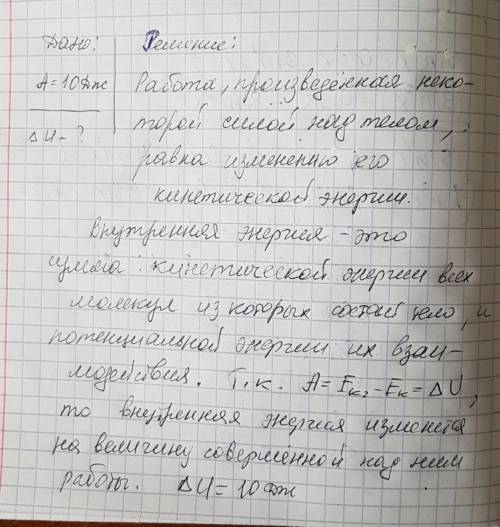 Дано: Решение:
A=10Дж Работа, произведённая неко-
ΔU-? торой силой над телом,
равна изменению его
кинетической энергии.
Внутренняя энергия - это
сумма: кинетической энергии всех
молекул из которых состоит тело, и
потенциальной энергии их взаи-
модействия. Т.к. A=Eк₂-Eк=ΔU,
то внутренняя энергия изменется
на величину совершенной над ним
работы. ΔU=10Дж